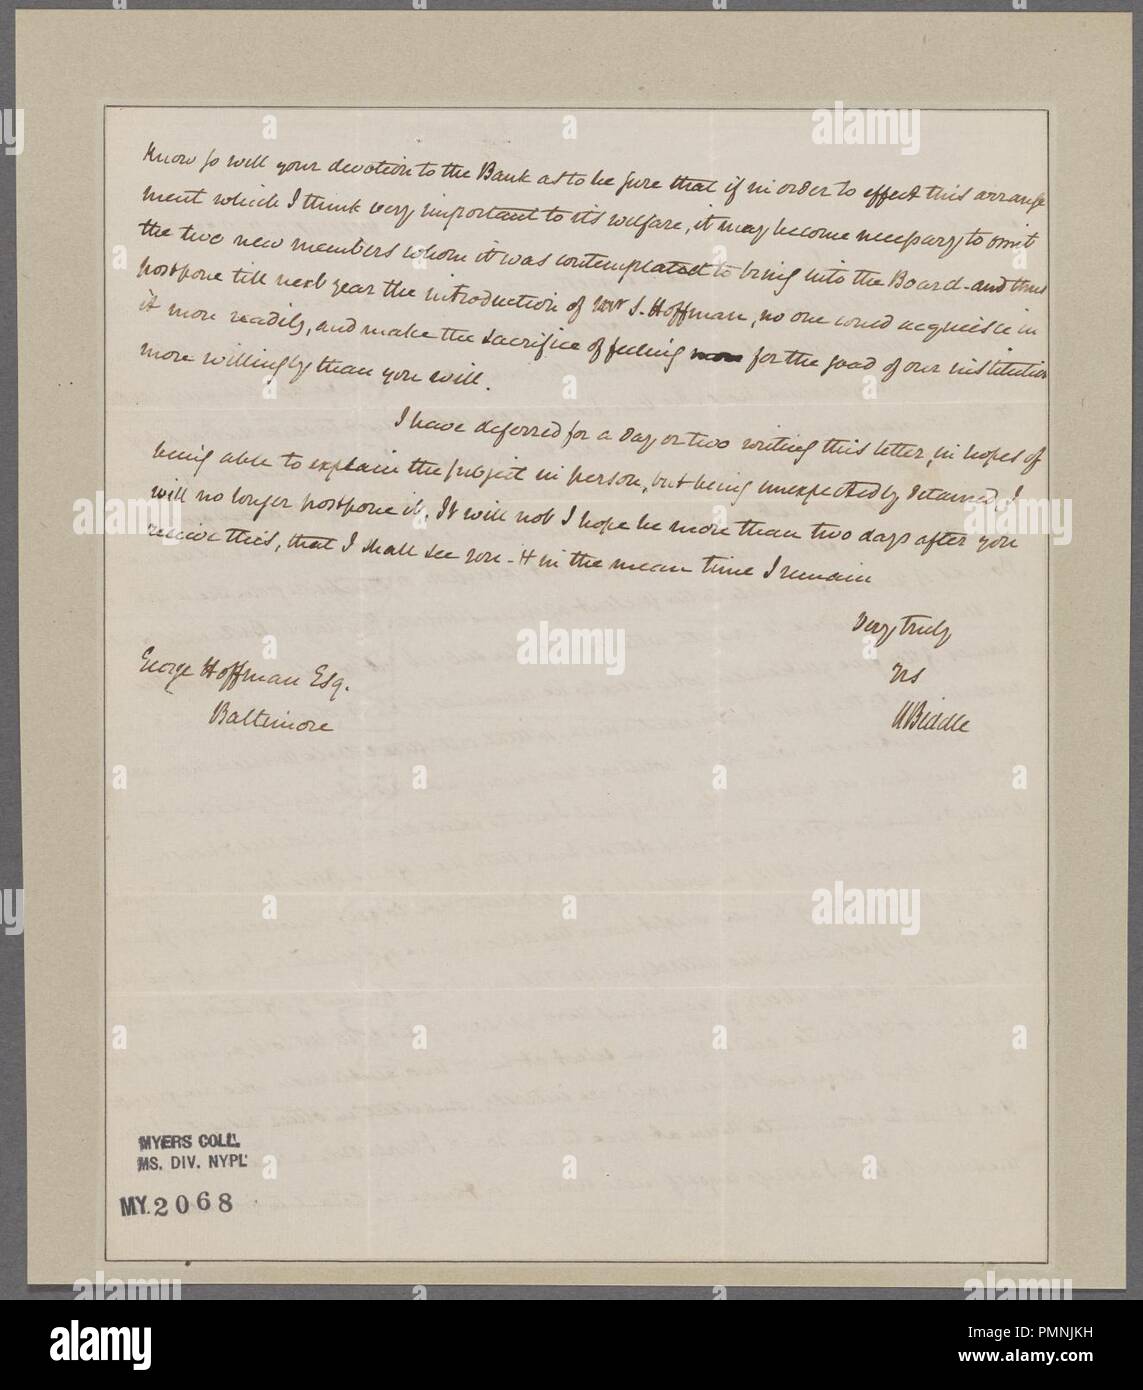 know so well your devotion to the Bank as to be sure that if in order to effect this arrange
ment which I think very important to its welfare, it may become necessary to omit
the two new members whom it was contemplated to bring into the Board - and thus
postpone till next year the introduction of Mr S. Hoffman, no one would acquiesce in
it more readily, and make the sacrifice of feeling for the good of our institution
more willingly than you will.
I have deferred for a day or two writing this letter, in hopes of
being able to explain the subject in person, but being unexpectedly detained, I
will no longer postpone it. It will not I hope be more than two days after you
receive this, that I shall see you - & in the mean time I remain
Very truly
Yrs
N Biddle
George Hoffman Esq.
Baltimore
MYERS COLL.
MS. DIV. NYPL
MY. 2068
alamy
a
alamy
Image ID: PMNJKH
www.alamy.com